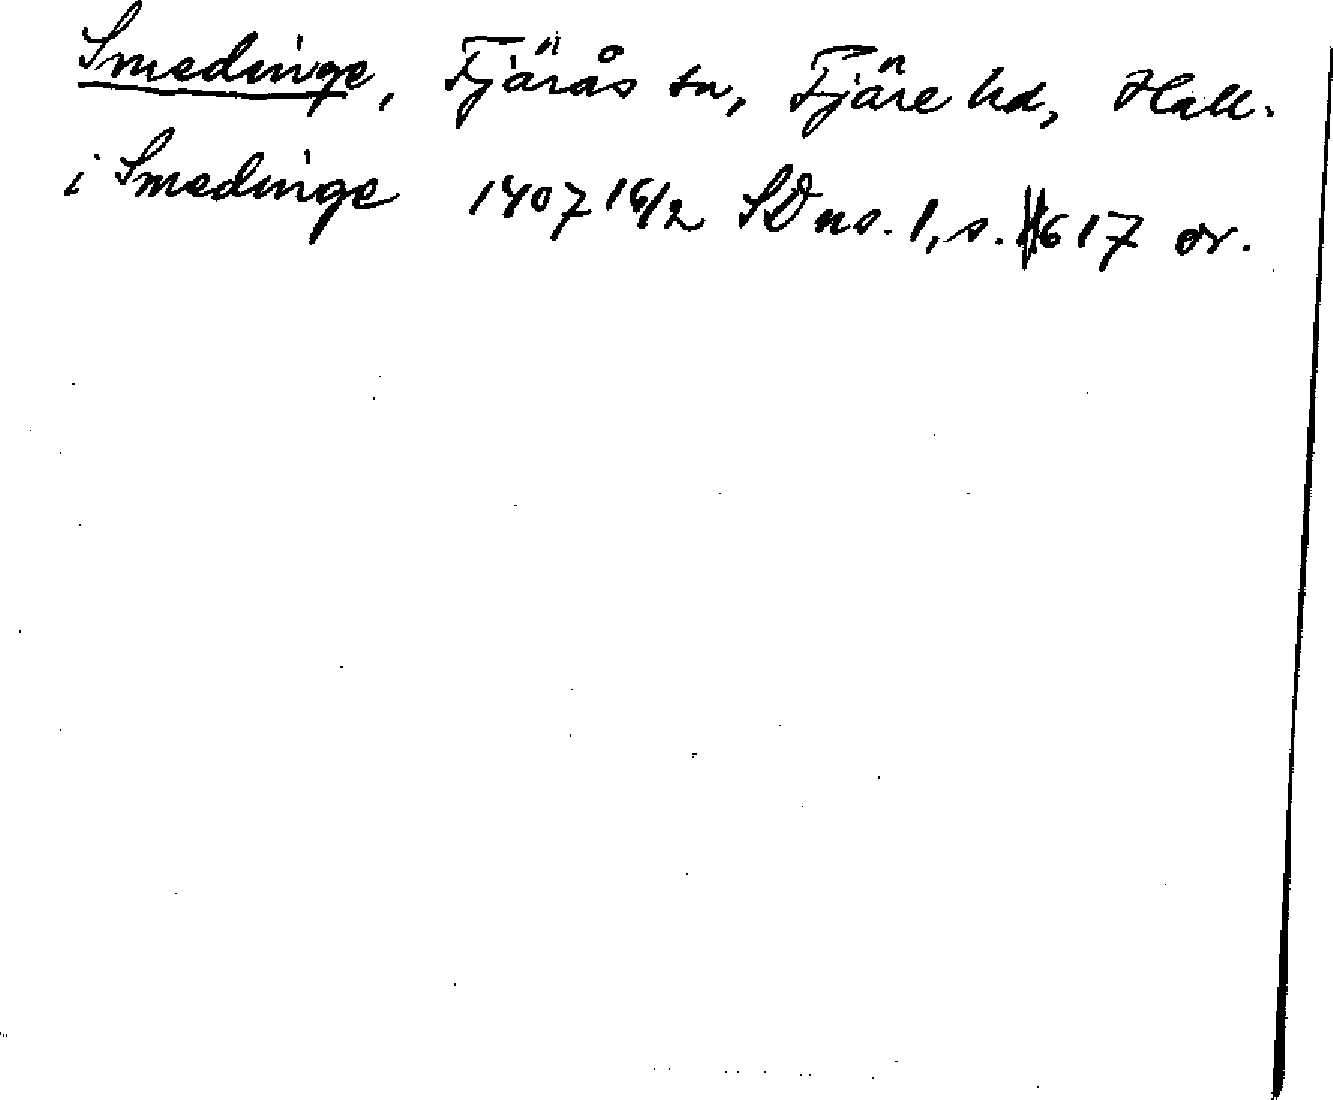 Smedinge, Fjärås sn, Fjäre hd, Hall.
i Smedinge 1407 16/2 SDns. 1, s. 617 or.